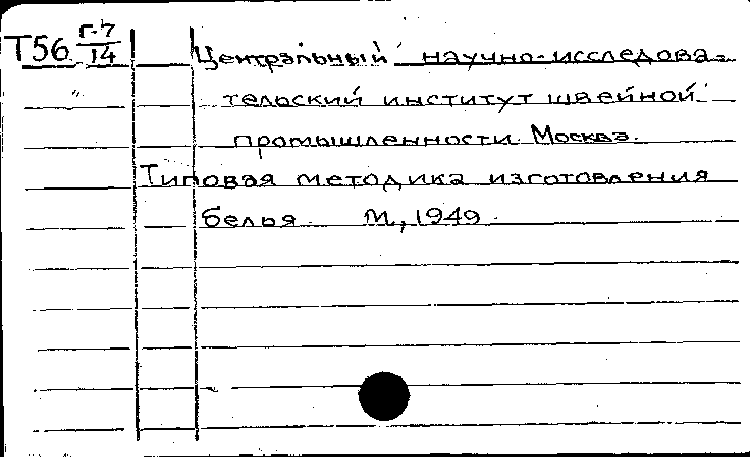 Т56 Г-7/14 Центральный научно-исследова-
тельский институт швейной
промышленности. Москва.
Типовая методика изготовления
белья. М., 1949.